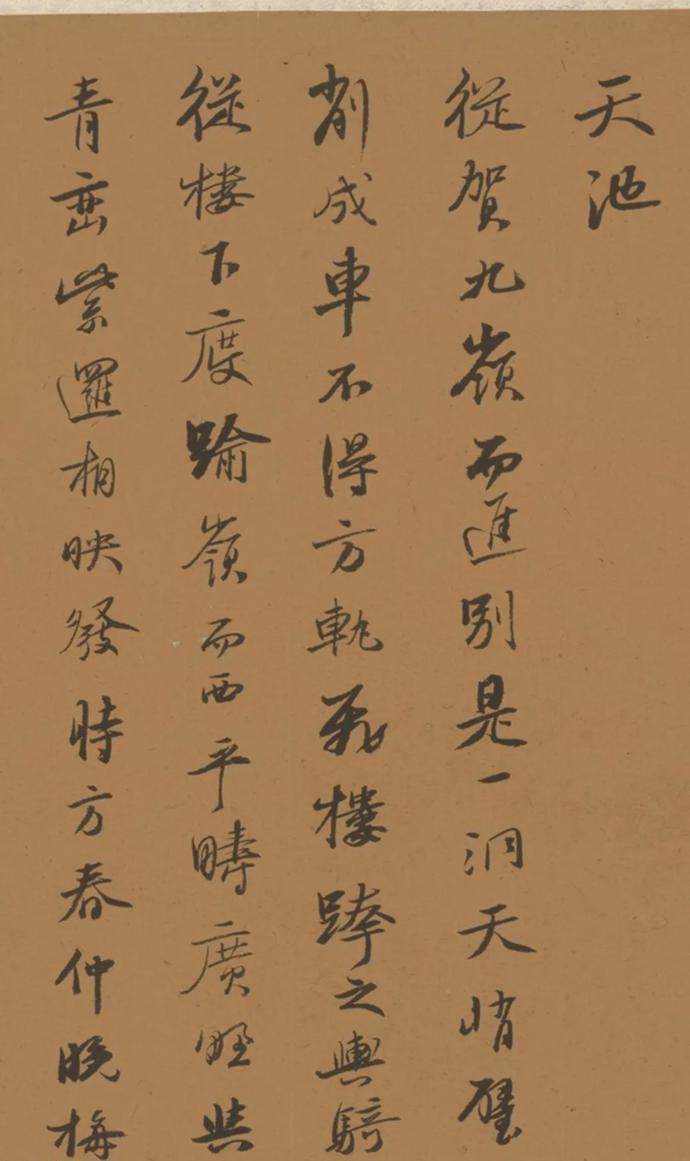 天池
從賀九嶺而進別是一洞天峭壁
削成車不得方軌飛樓跨之輿騎
從樓下度踰嶺而西平疇廣野與
青峦紫邏相映發時方春仲晚梅